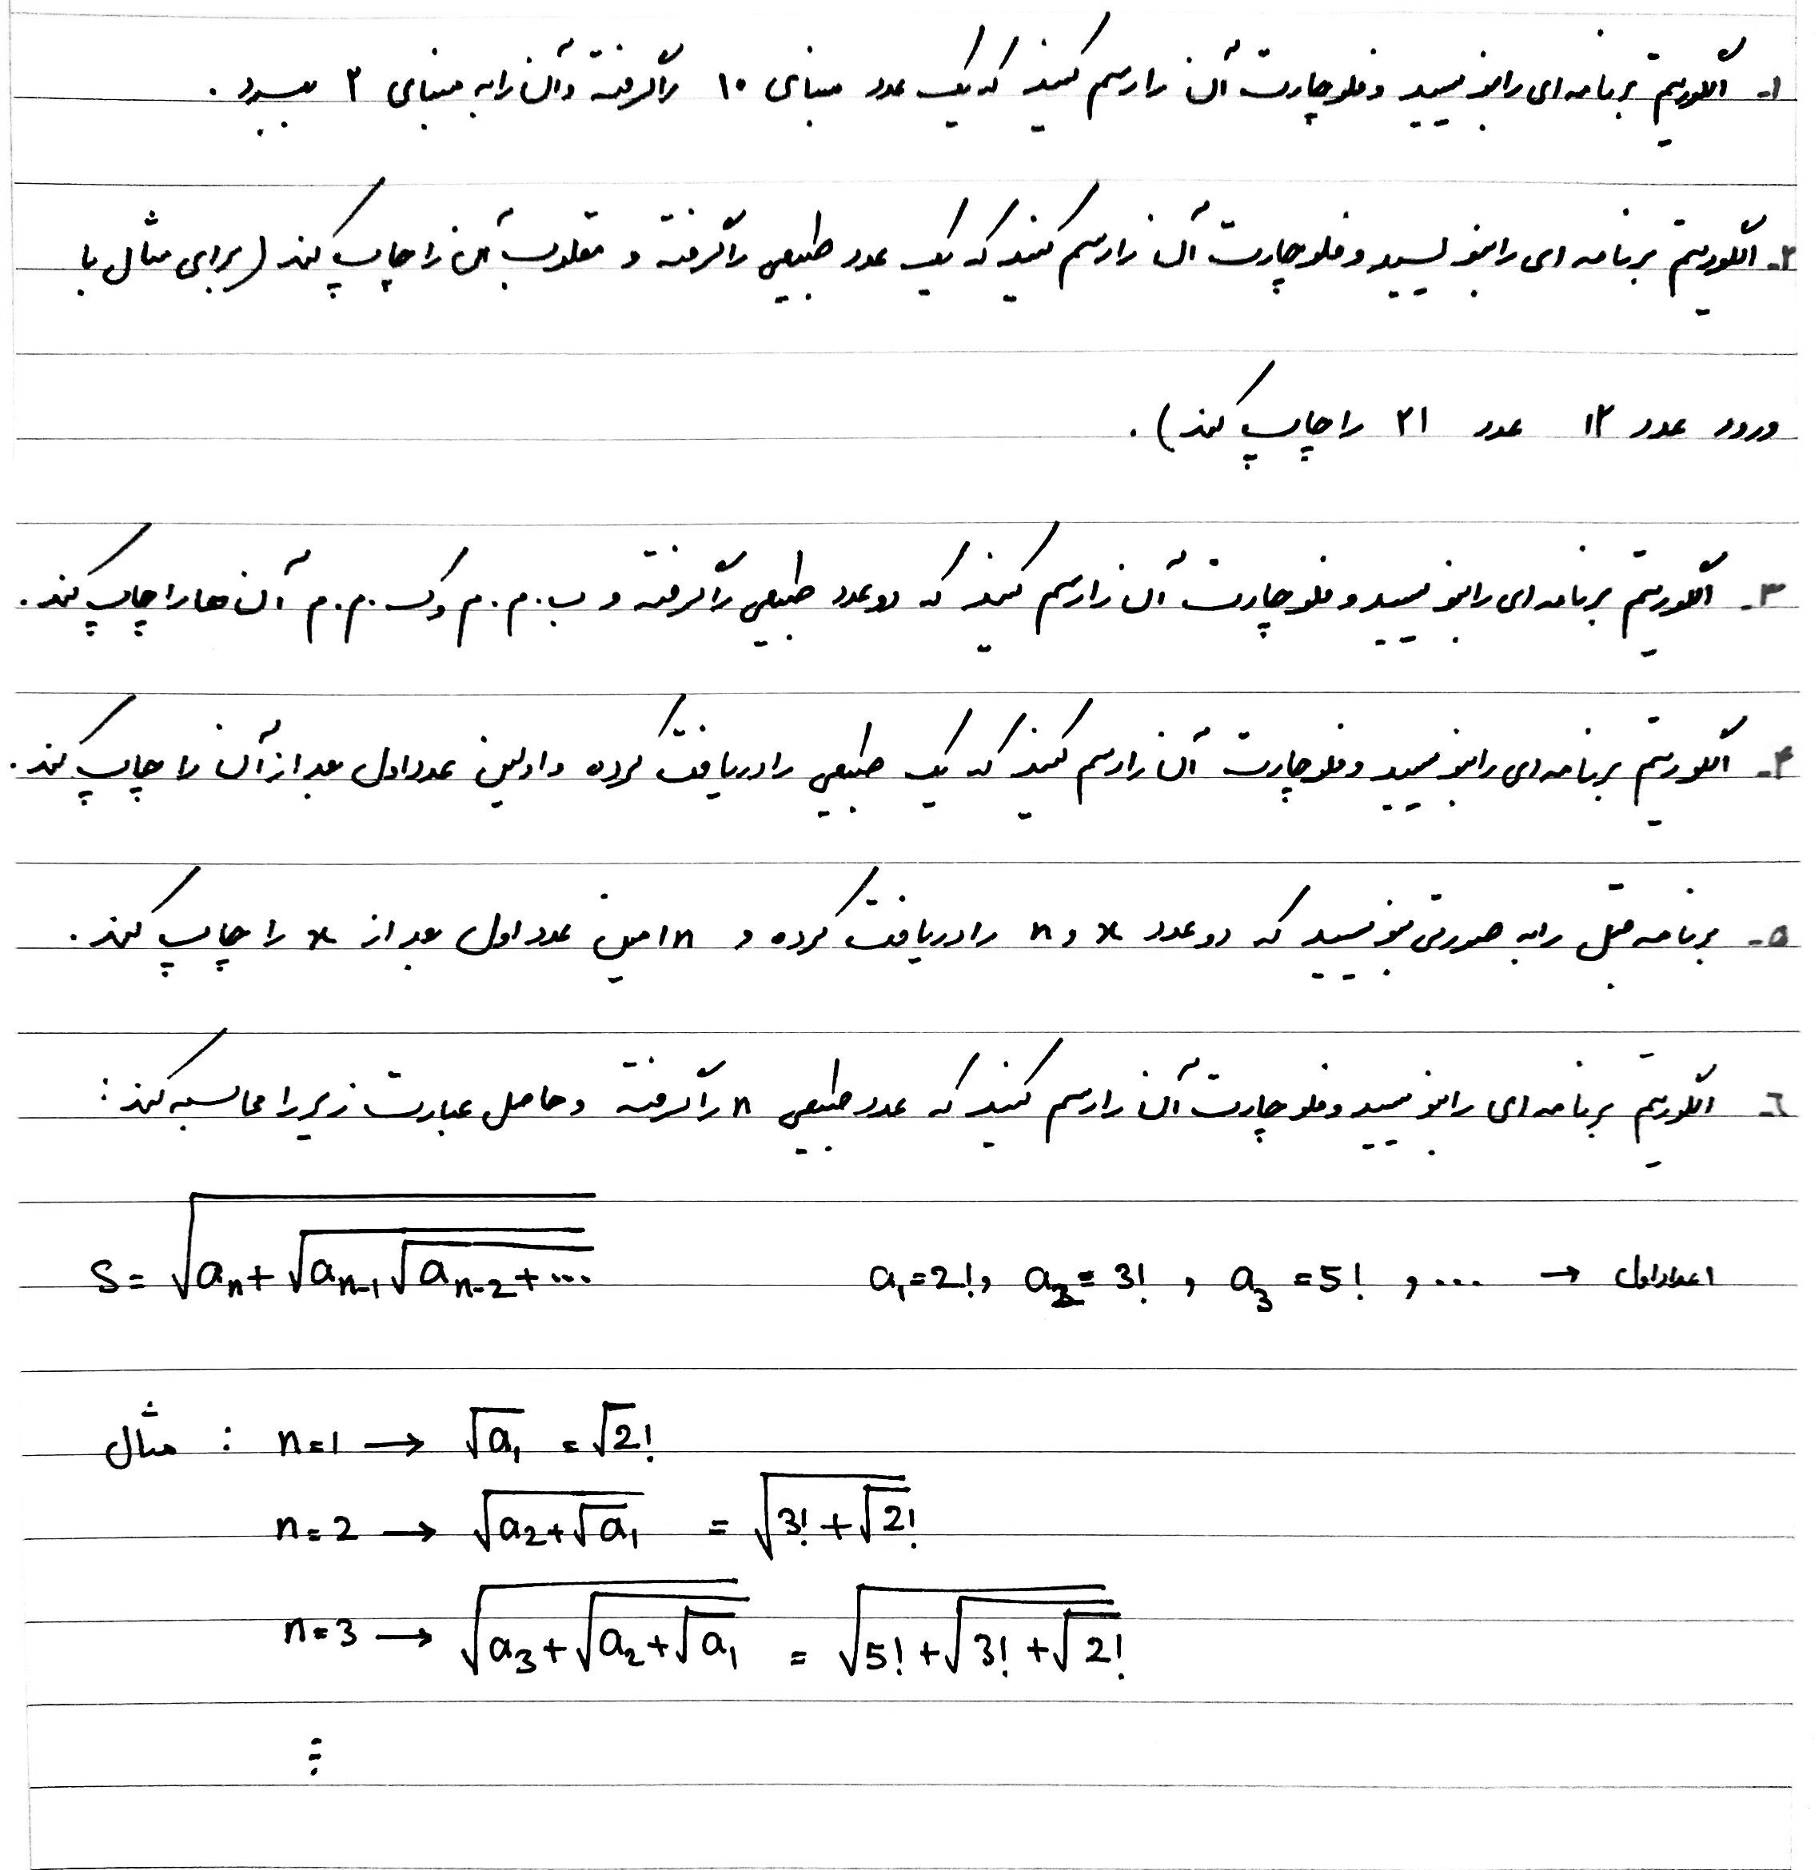 ۱- الگوریتم برنامه ای را بنویسید و فلوچارت آن را رسم کنید که یک عدد مبنای ۱۰ را گرفته و آن را به مبنای ۲ ببرد.
۲- الگوریتم برنامه ای را بنویسید و فلوچارت آن را رسم کنید که یک عدد طبیعی را گرفته و مقلوب آن را چاپ کند (برای مثال با
ورود عدد ۱۲ عدد ۲۱ را چاپ کند).
۳- الگوریتم برنامه ای را بنویسید و فلوچارت آن را رسم کنید که دو عدد طبیعی را گرفته و ب.م.م و ک.م.م آن ها را چاپ کند.
۴- الگوریتم برنامه ای را بنویسید و فلوچارت آن را رسم کنید که یک طبیعی را دریافت کرده و اولین عدد اول بعد از آن را چاپ کند.
۵- برنامه قبل را به صورتی بنویسید که دو عدد x و n را دریافت کرده و n امین عدد اول بعد از x را چاپ کند.
۶- الگوریتم برنامه ای را بنویسید و فلوچارت آن را رسم کنید که عدد طبیعی n را گرفته و حاصل عبارت زیر را محاسبه کند:
S = √(aₙ + √(aₙ₋₁ √(aₙ₋₂ + ... a₁ = 2! , a₂ = 3! , a₃ = 5! , ... → اعداد اول
مثال : n=1 → √a₁ = √2!
n=2 → √(a₂+√a₁) = √(3!+√2!)
n=3 → √(a₃+√(a₂+√a₁)) = √(5!+√(3!+√2!))
⋮